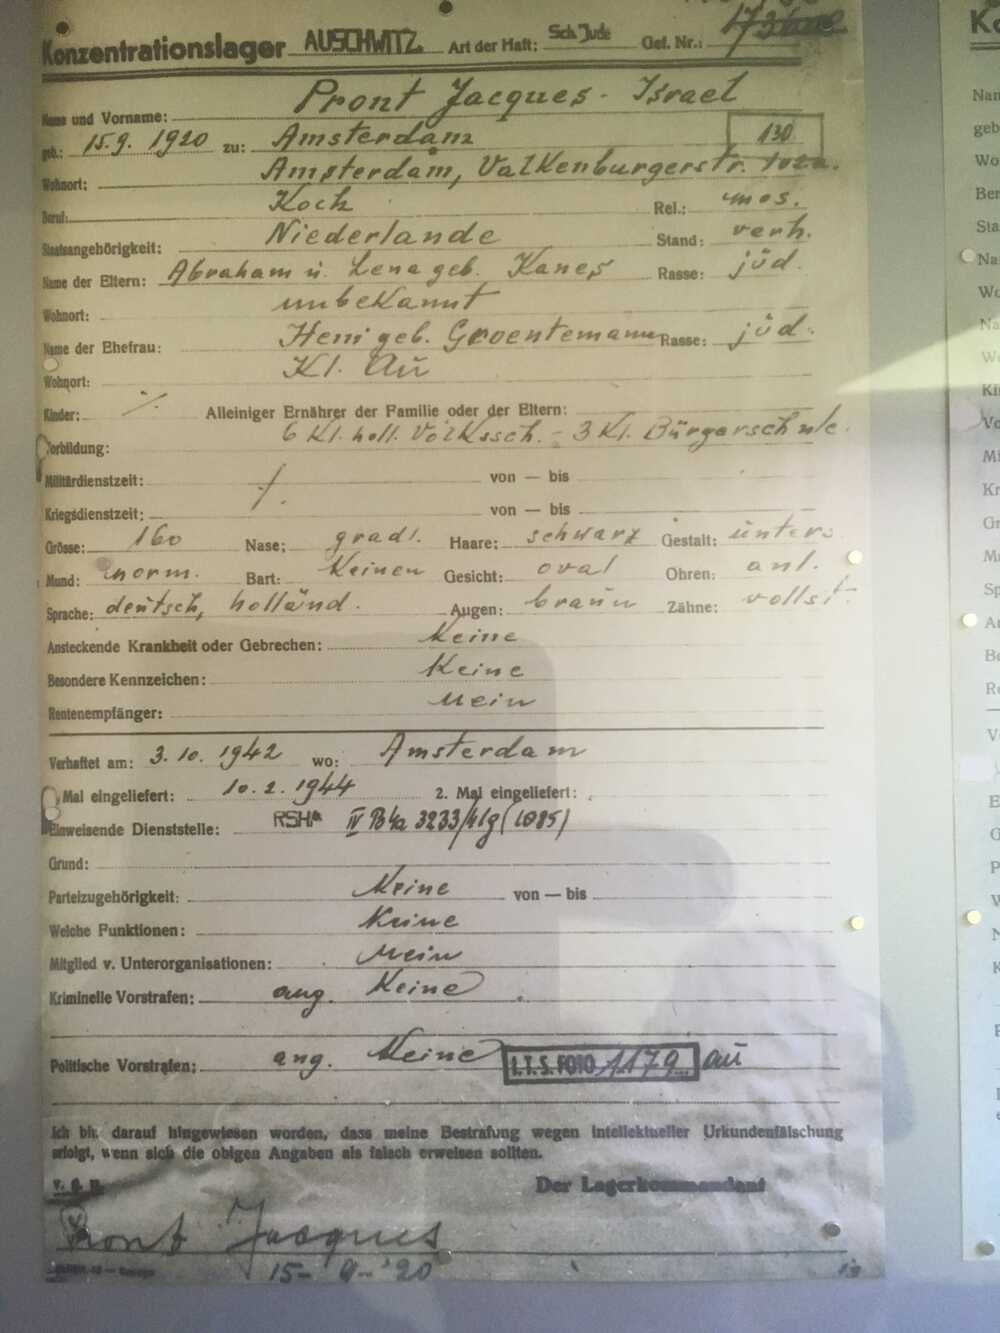 Konzentrationslager AUSCHWITZ Art der Haft: Sch. Jude Gef. Nr.:
Name und Vorname: Pront Jacques - Israel
geb.: 15.9. 1920 zu: Amsterdam 130
Wohnort: Amsterdam, Valkenburgerstr.
Beruf: Koch Rel.: mos.
Staatsangehörigkeit: Niederlande Stand: verh.
Name der Eltern: Abraham u. Lena geb. Kanes Rasse: jüd.
Wohnort: unbekannt
Name der Ehefrau: Heni geb. Groentemann Rasse: jüd.
Wohnort: Kl. Au
Kinder: ⁒ Alleiniger Ernährer der Familie oder der Eltern:
Vorbildung: 6 Kl. holl. Volkssch. - 3 Kl. Bürgerschule.
Militärdienstzeit: von — bis
Kriegsdienstzeit: ⁒ von — bis
Grösse: 160 Nase: gradl. Haare: schwarz Gestalt: unters.
Mund: norm. Bart: Keinen Gesicht: oval Ohren: anl.
Sprache: deutsch, holländ. Augen: braun Zähne: vollst.
Ansteckende Krankheit oder Gebrechen: Keine
Besondere Kennzeichen: Keine
Rentenempfänger: Nein
Verhaftet am: 3. 10. 1942 wo: Amsterdam
Mal eingeliefert: 10. 2. 1944 2. Mal eingeliefert:
Einweisende Dienststelle: RSHA IV B4a 3233/41g (1085)
Grund:
Parteizugehörigkeit: Keine von — bis
Welche Funktionen: Keine
Mitglied v. Unterorganisationen: Nein
Kriminelle Vorstrafen: ang. Keine
Politische Vorstrafen: ang. Keine I.T.S. FOTO 1179 au
Ich bin darauf hingewiesen worden, dass meine Bestrafung wegen intellektueller Urkundenfälschung
erfolgt, wenn sich die obigen Angaben als falsch erweisen sollten.
v. g. u. Der Lagerkommandant
Pront Jacques
15- 9-'20